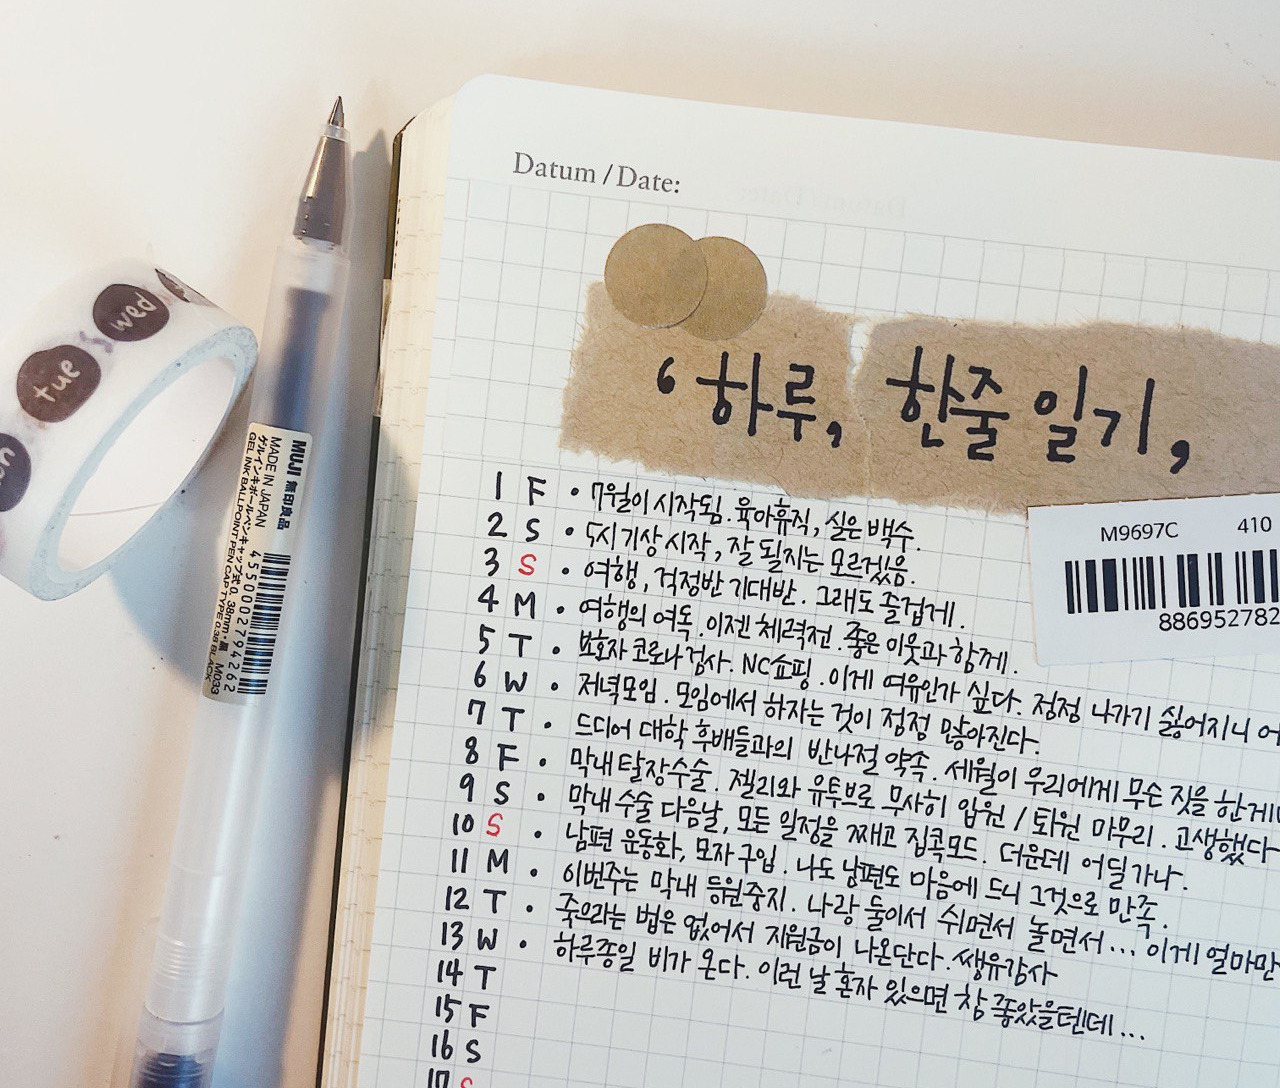 Datum / Date:
‘하루, 한줄 일기,
1 F • 7월이 시작됨. 육아휴직, 실은 백수.
2 S • 5시 기상 시작, 잘 될지는 모르겠음.
3 S • 여행, 걱정반 기대반. 그래도 즐겁게.
4 M • 여행의 여독. 이젠 체력전. 좋은 이웃과 함께.
5 T • 보호자 코로나 검사. NC쇼핑. 이게 여유인가 싶다. 점점 나가기 싫어지니 어
6 W • 저녁모임. 모임에서 하자는 것이 점점 많아진다.
7 T • 드디어 대학 후배들과의 반나절 약속. 세월이 우리에게 무슨 짓을 한게
8 F • 막내 탈장수술. 젤리와 유투브로 무사히 입원 / 퇴원 마무리. 고생했다
9 S • 막내 수술 다음날, 모든 일정을 째고 집콕모드. 더운데 어딜가나.
10 S • 남편 운동화, 모자 구입. 나도 남편도 마음에 드니 그것으로 만족.
11 M • 이번주는 막내 등원중지. 나랑 둘이서 쉬면서 놀면서... 이게 얼마만
12 T • 죽으라는 법은 없어서 지원금이 나온단다. 쌩유감사
13 W • 하루종일 비가 온다. 이런 날 혼자 있으면 참 좋았을텐데...
14 T
15 F
16 S
17 S
M9697C 410
886952782
tue
wed
MUJI 無印良品
MADE IN JAPAN
ゲルインキボールペンキャップ式 0.38mm・黒 M033
GEL INK BALLPOINT PEN CAP TYPE 0.38 BLACK
4550002794262